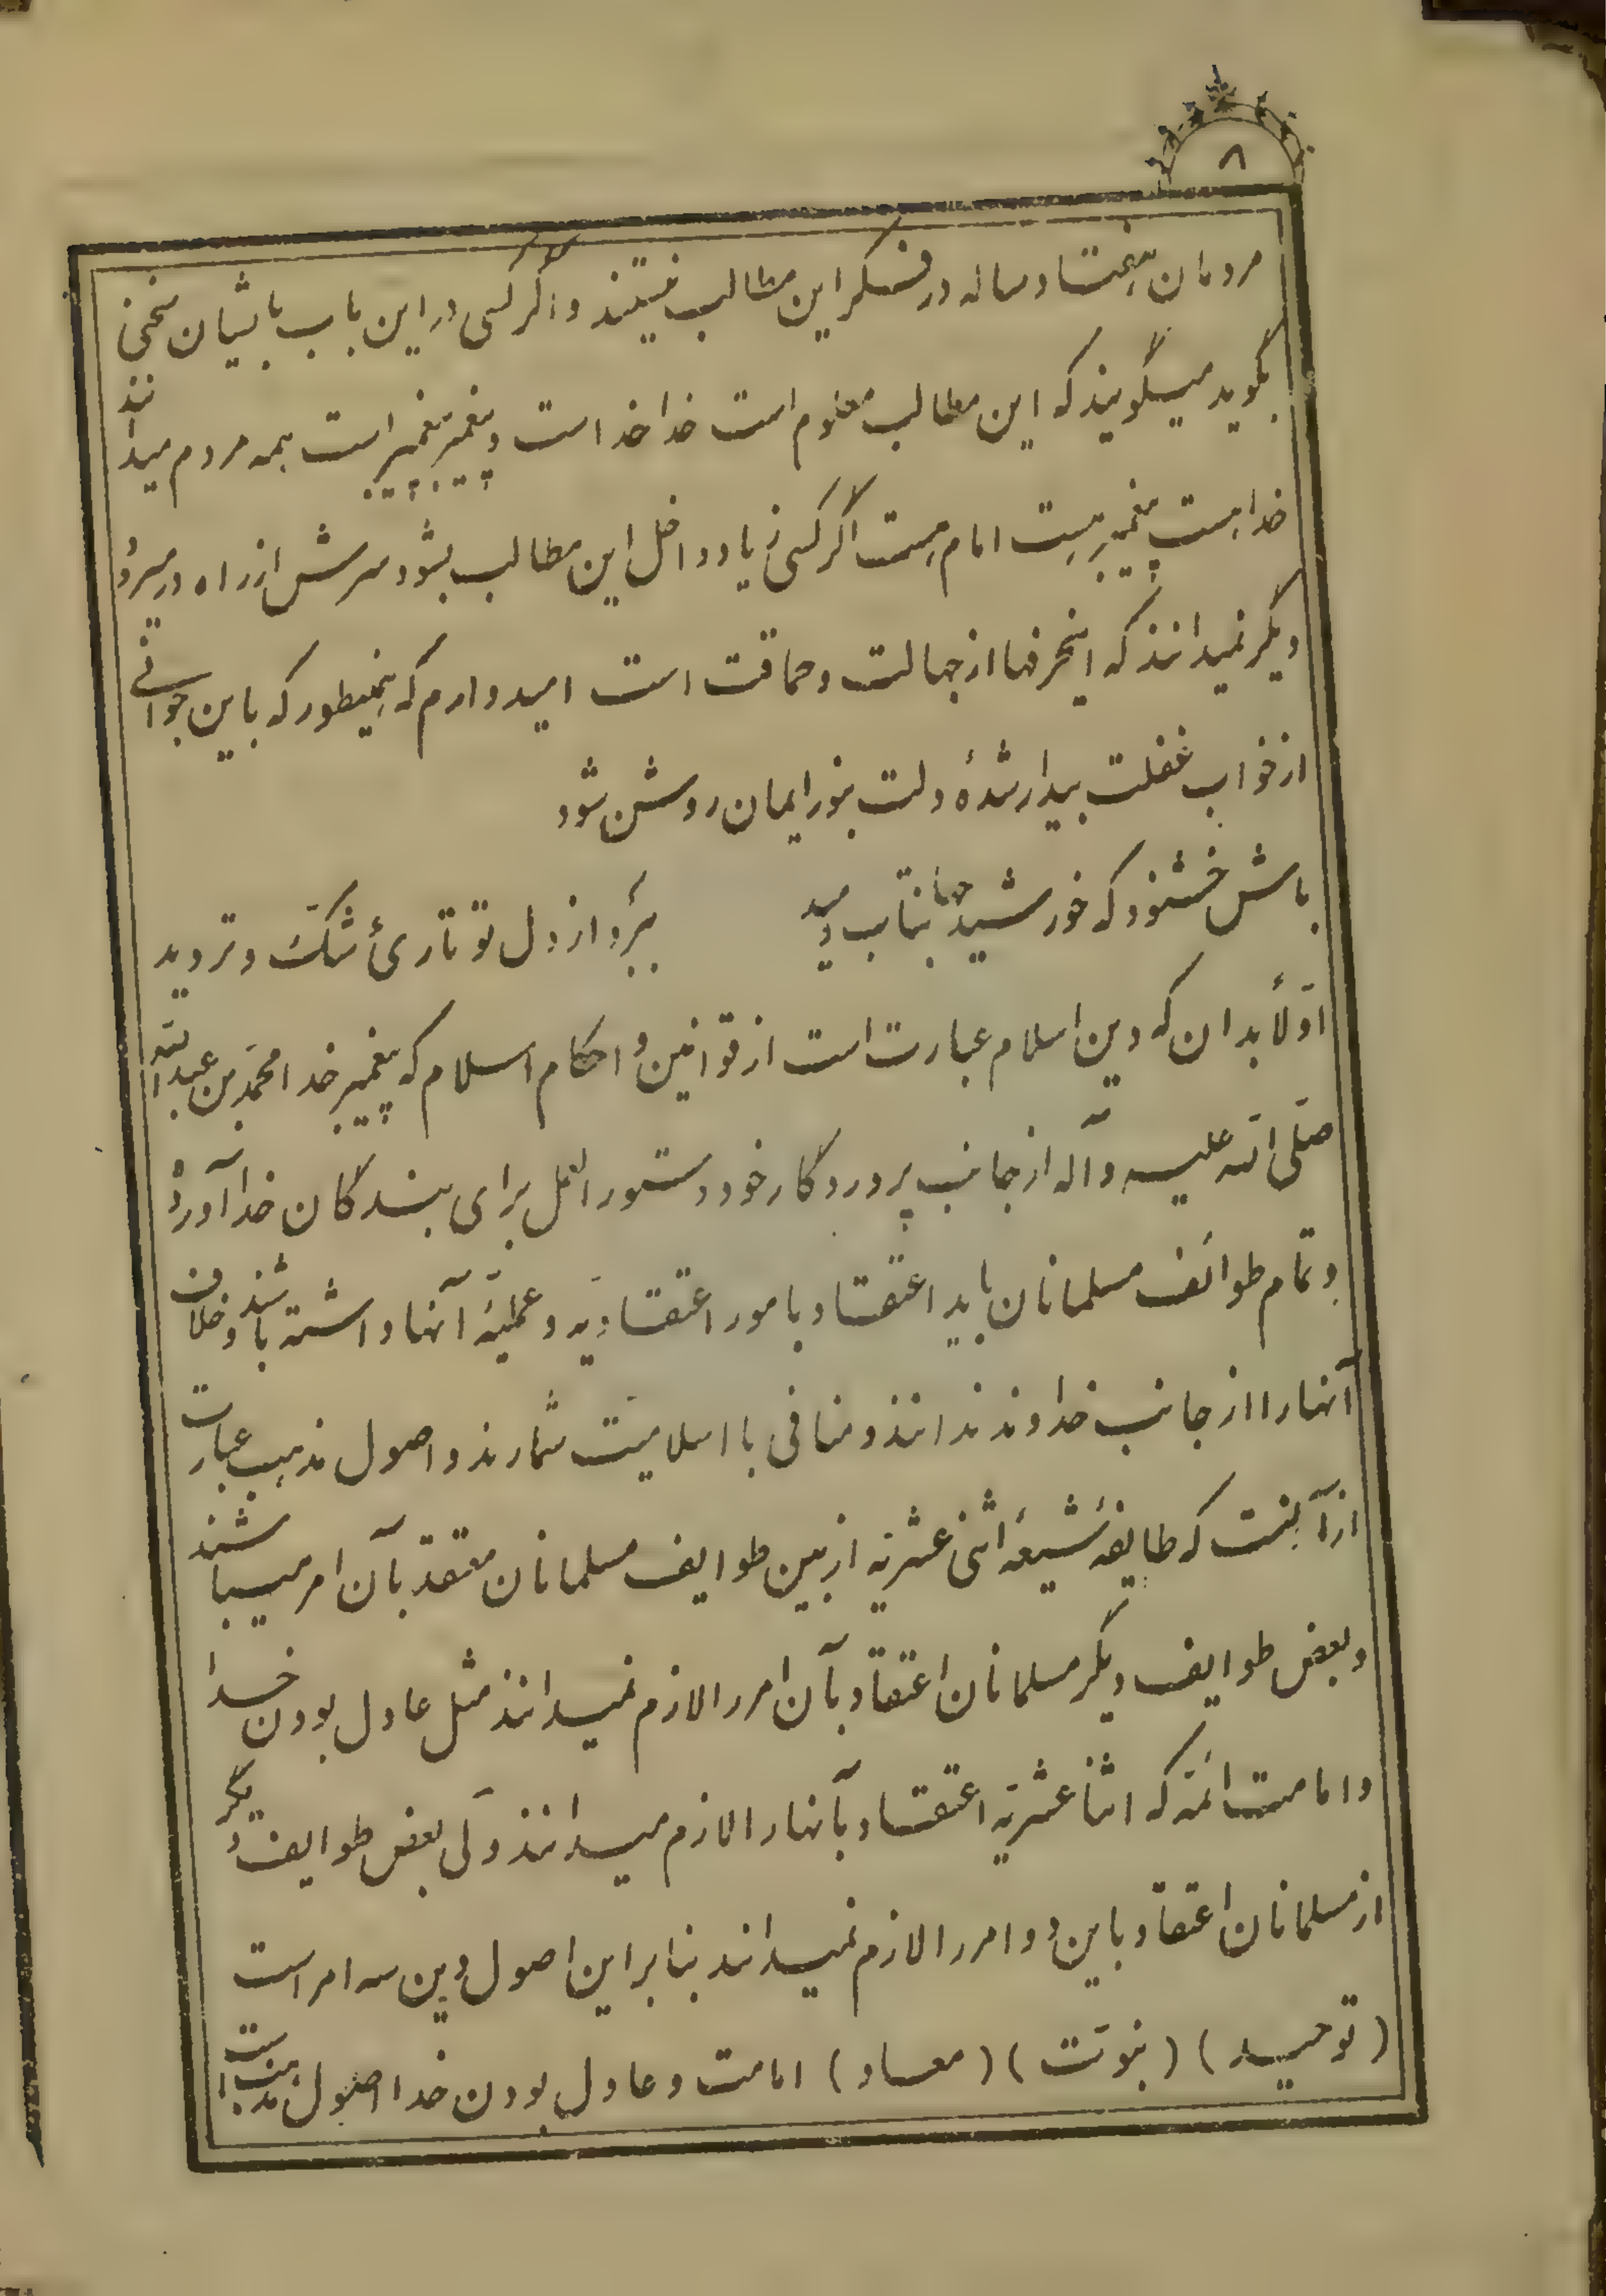 ۸
مردمان هفتاد ساله در فکر این مطالب نیستند و اگر کسی در این باب بایشان سخنی
بگوید میگویند که این مطالب معلوم است خدا خداست و پیغمبر پیغمبر است همه مردم میدانند
خدا هست پیغمبر هست امام هست اگر کسی زیاد داخل این مطالب بشود سرش از راه در میرود
دیگر نمیدانند که اینحرفها از جهالت و حماقت است امیدوارم که همینطور که باین جوانی
از خواب غفلت بیدار شدۀ دلت بنور ایمان روشن شود
باش خشنود که خورشید جهانتاب دمید ببرد از دل تو تاریٔ شکّ و تردید
اوّلاً بدان که دین اسلام عبارت است از قوانین و احکام اسلام که پیغمبر خدا محمّد بن عبدالله
صلّی الله علیه و آله از جانب پروردگار خود دستورالعمل برای بندگان خدا آورده
و تمام طوائف مسلمانان باید اعتقاد بامور اعتقادیّه و عملیّهٔ آنها داشته باشند و خلاف
آنها را از جانب خداوند ندانند و منافی با اسلامیّت شمارند و اصول مذهب عبارت
از آنست که طایفهٔ شیعهٔ اثنی عشریّه از بین طوایف مسلمانان معتقد بآن امر میباشند
و بعض طوایف دیگر مسلمانان اعتقاد بآن امر را لازم نمیدانند مثل عادل بودن خدا
و امامت ائمّه که اثنا عشریّه اعتقاد بآنها را لازم میدانند ولی بعض طوایف دیگر
از مسلمانان اعتقاد باین دو امر را لازم نمیدانند بنابر این اصول دین سه امر است
(توحید) (نبوّت) (معاد) امامت و عادل بودن خدا اصول مذهب است